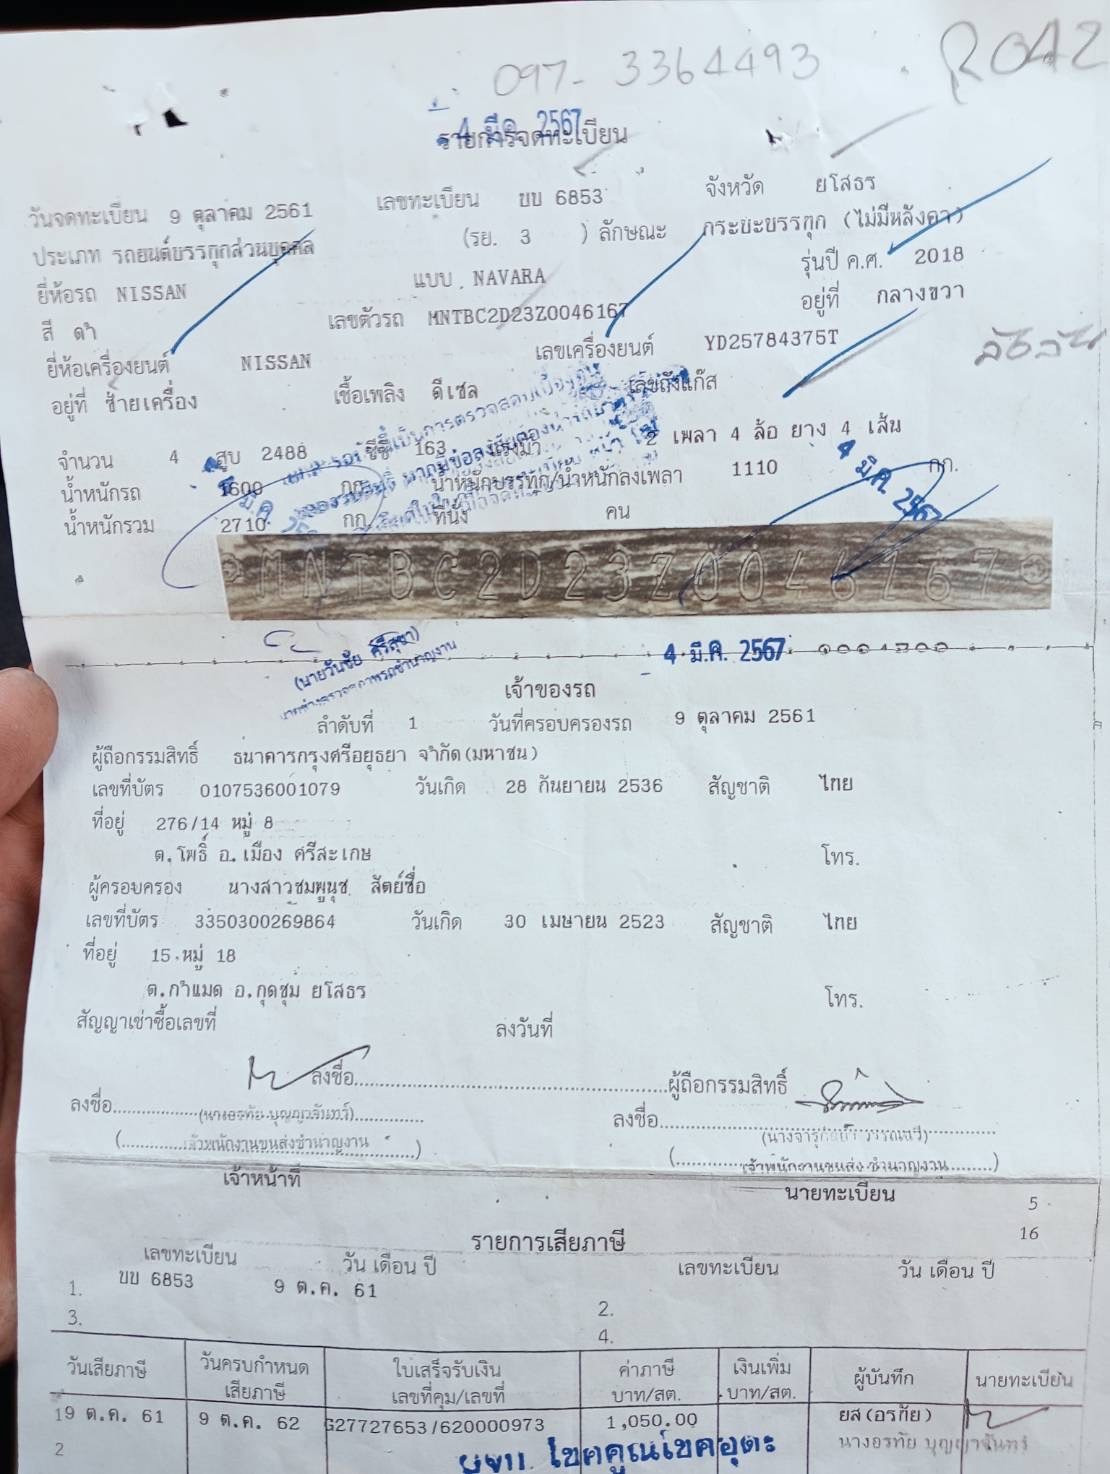 097-3364493 R042
4 มี.ค. 2567
รายการจดทะเบียน
วันจดทะเบียน 9 ตุลาคม 2561 เลขทะเบียน บบ 6853 จังหวัด ยโสธร
ประเภท รถยนต์บรรทุกส่วนบุคคล (รย. 3 ) ลักษณะ กระบะบรรทุก (ไม่มีหลังคา)
ยี่ห้อรถ NISSAN แบบ NAVARA รุ่นปี ค.ศ. 2018
สี ดำ เลขตัวรถ MNTBC2D23Z0046167 อยู่ที่ กลางขวา
ยี่ห้อเครื่องยนต์ NISSAN เลขเครื่องยนต์ YD25784375T
อยู่ที่ ซ้ายเครื่อง เชื้อเพลิง ดีเซล เลขถังแก๊ส
จำนวน 4 สูบ 2488 ซีซี 163 แรงม้า 2 เพลา 4 ล้อ ยาง 4 เส้น
น้ำหนักรถ 1600 กก. น้ำหนักบรรทุก/น้ำหนักลงเพลา 1110 กก.
4 มี.ค. 2567
น้ำหนักรวม 2710 กก. ที่นั่ง คน
MNTBC2D23Z0046167
(นายวันชัย ศรีสุขา)
4 มี.ค. 2567
เจ้าของรถ
ลำดับที่ 1 วันที่ครอบครองรถ 9 ตุลาคม 2561
ผู้ถือกรรมสิทธิ์ ธนาคารกรุงศรีอยุธยา จำกัด(มหาชน)
เลขที่บัตร 0107536001079 วันเกิด 28 กันยายน 2536 สัญชาติ ไทย
ที่อยู่ 276/14 หมู่ 8
ต.โพธิ์ อ.เมือง ศรีสะเกษ โทร.
ผู้ครอบครอง นางสาวชมพูนุช สัตย์ซื่อ
เลขที่บัตร 3350300269864 วันเกิด 30 เมษายน 2523 สัญชาติ ไทย
ที่อยู่ 15 หมู่ 18
ต.กำแมด อ.กุดชุม ยโสธร โทร.
สัญญาเช่าซื้อเลขที่ ลงวันที่
ลงชื่อ ผู้ถือกรรมสิทธิ์
ลงชื่อ (นางอรทัย บุญญาจันทร์) ลงชื่อ
(เจ้าพนักงานขนส่งชำนาญงาน) (เจ้าพนักงานขนส่งชำนาญงาน)
เจ้าหน้าที่ นายทะเบียน
5
16
รายการเสียภาษี
เลขทะเบียน วัน เดือน ปี เลขทะเบียน วัน เดือน ปี
1. บบ 6853 9 ต.ค. 61 2.
3. 4.
วันเสียภาษี วันครบกำหนดเสียภาษี ใบเสร็จรับเงิน เลขที่คุม/เลขที่ ค่าภาษี บาท/สต. เงินเพิ่ม บาท/สต. ผู้บันทึก นายทะเบียน
1 9 ต.ค. 61 9 ต.ค. 62 G27727653/620000973 1,050.00 ยส(อรทัย)
2 นางอรทัย บุญญาจันทร์
ผจก. โชคคูณโชคอุดะ